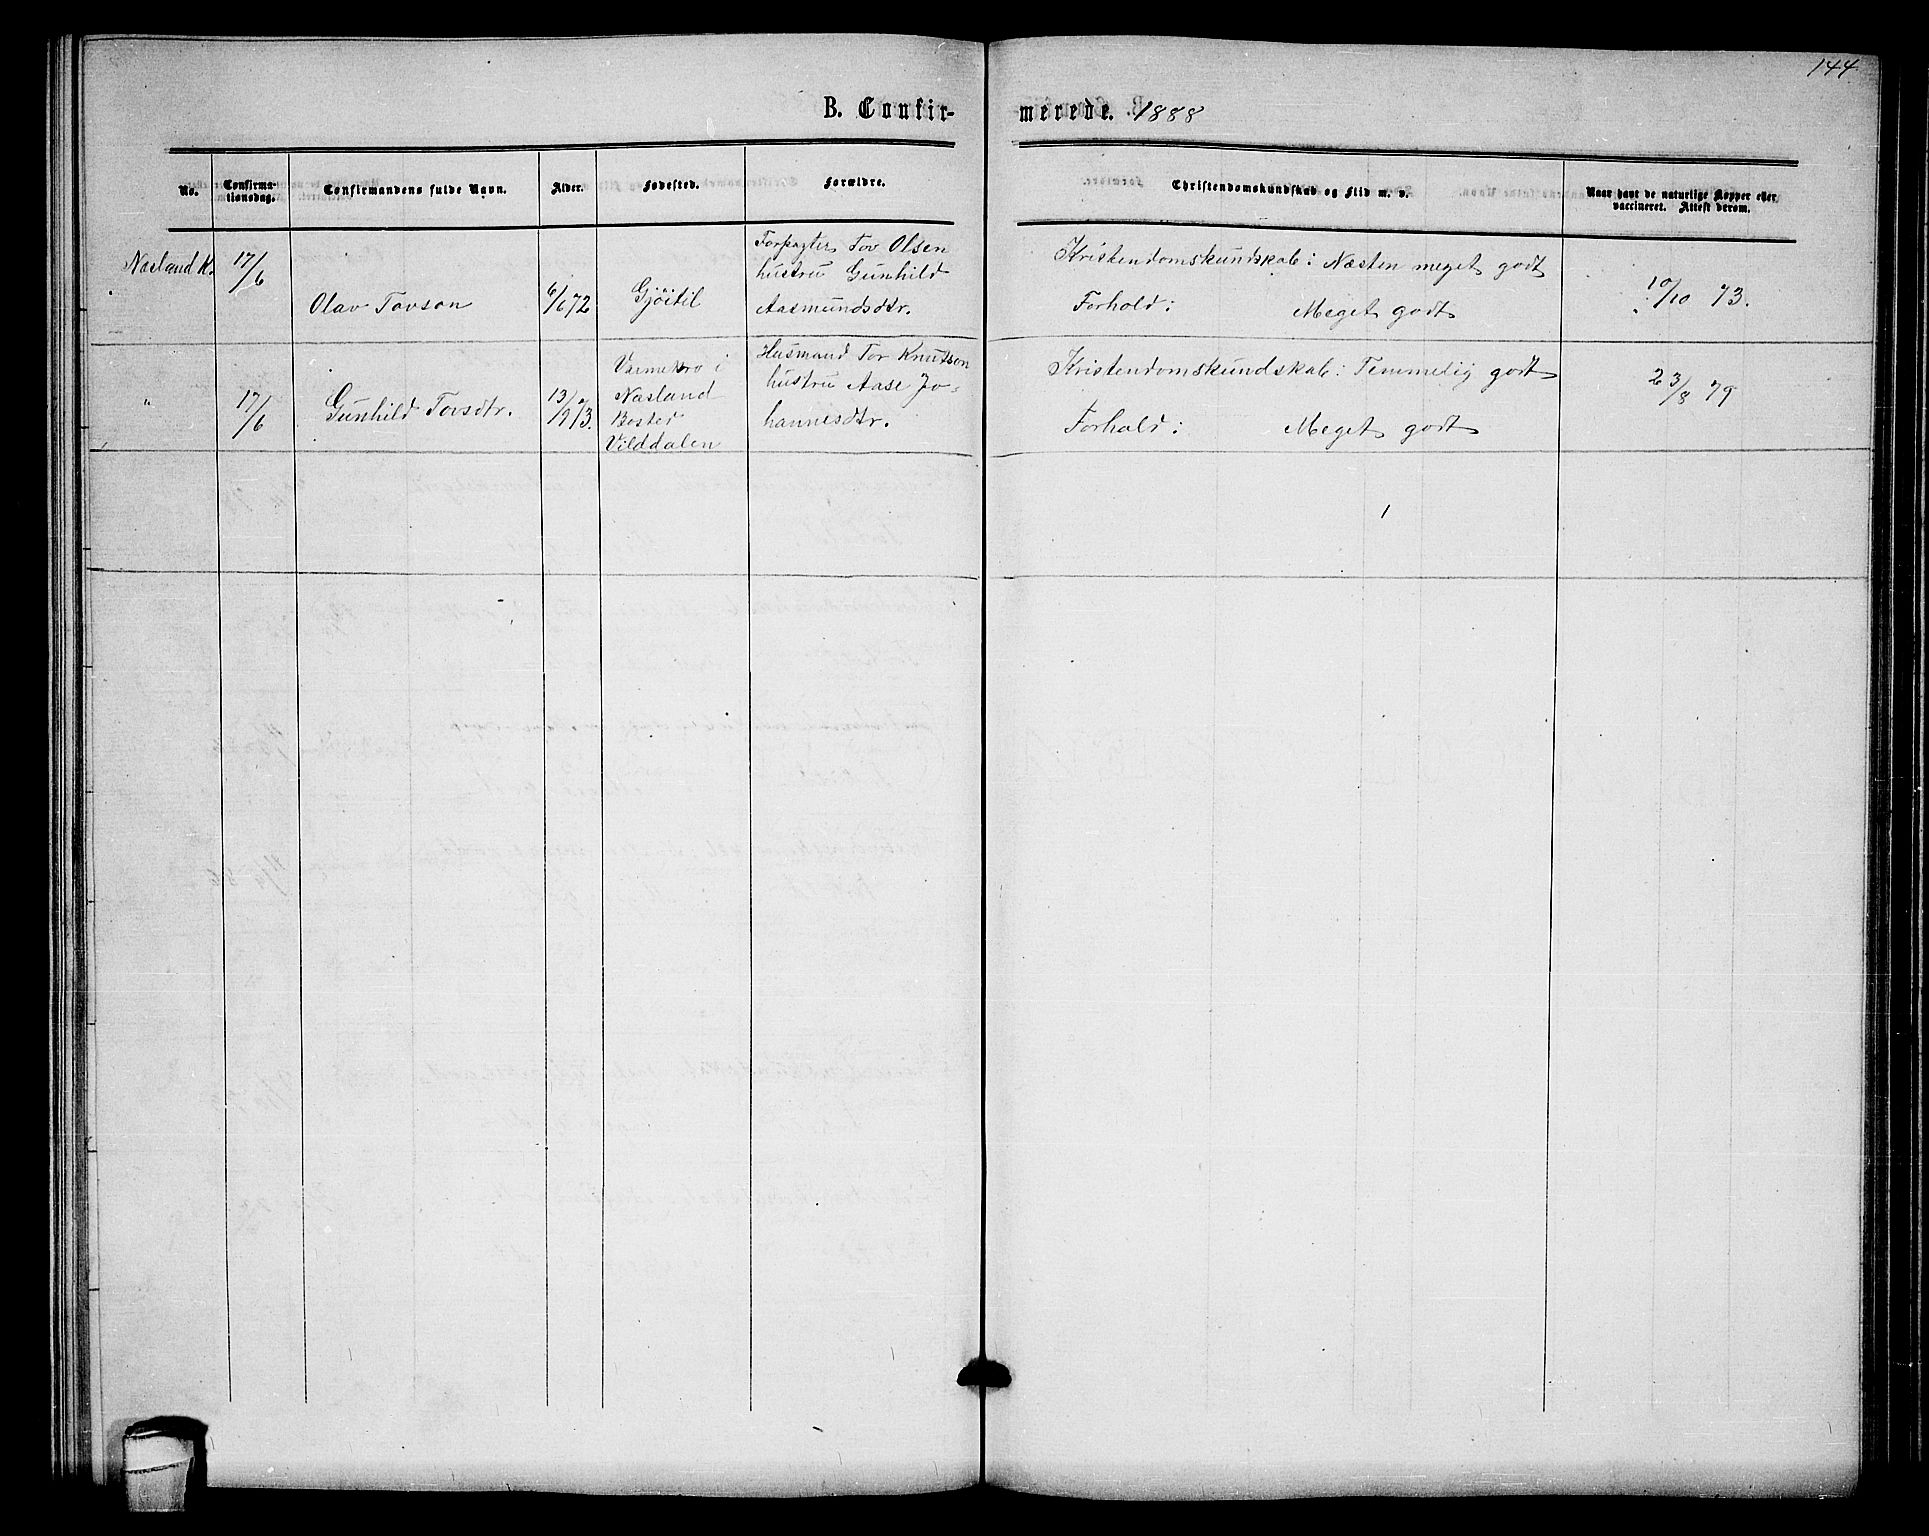 144
B. Confir-
merede. 1888
No.
Confirma-
tionsdag.
Confirmandens fulde Navn.
Alder.
Fødested.
Forældre.
Christendomskundskab og Flid m. v.
Naar havt de naturlige Kopper eller
vaccineret. Attest derom.
Næsland K.
17/6
Olav Tovson
6/6 72
Gjöitil
Forpagter Tov Olsen
hustru Gunhild
Aasmundsdtr.
Kristendomskundskab: Næsten meget godt
Forhold: Meget godt
10/10 73.
"
17/6
Gunhild Torsdtr.
13/9 73.
i
Næsland
Bosted
Vilddalen
Husmand Tor Knutson
hustru Aase Jo-
hannesdtr.
Kristendomskundskab: Temmelig godt
Forhold: Meget godt
23/8 79